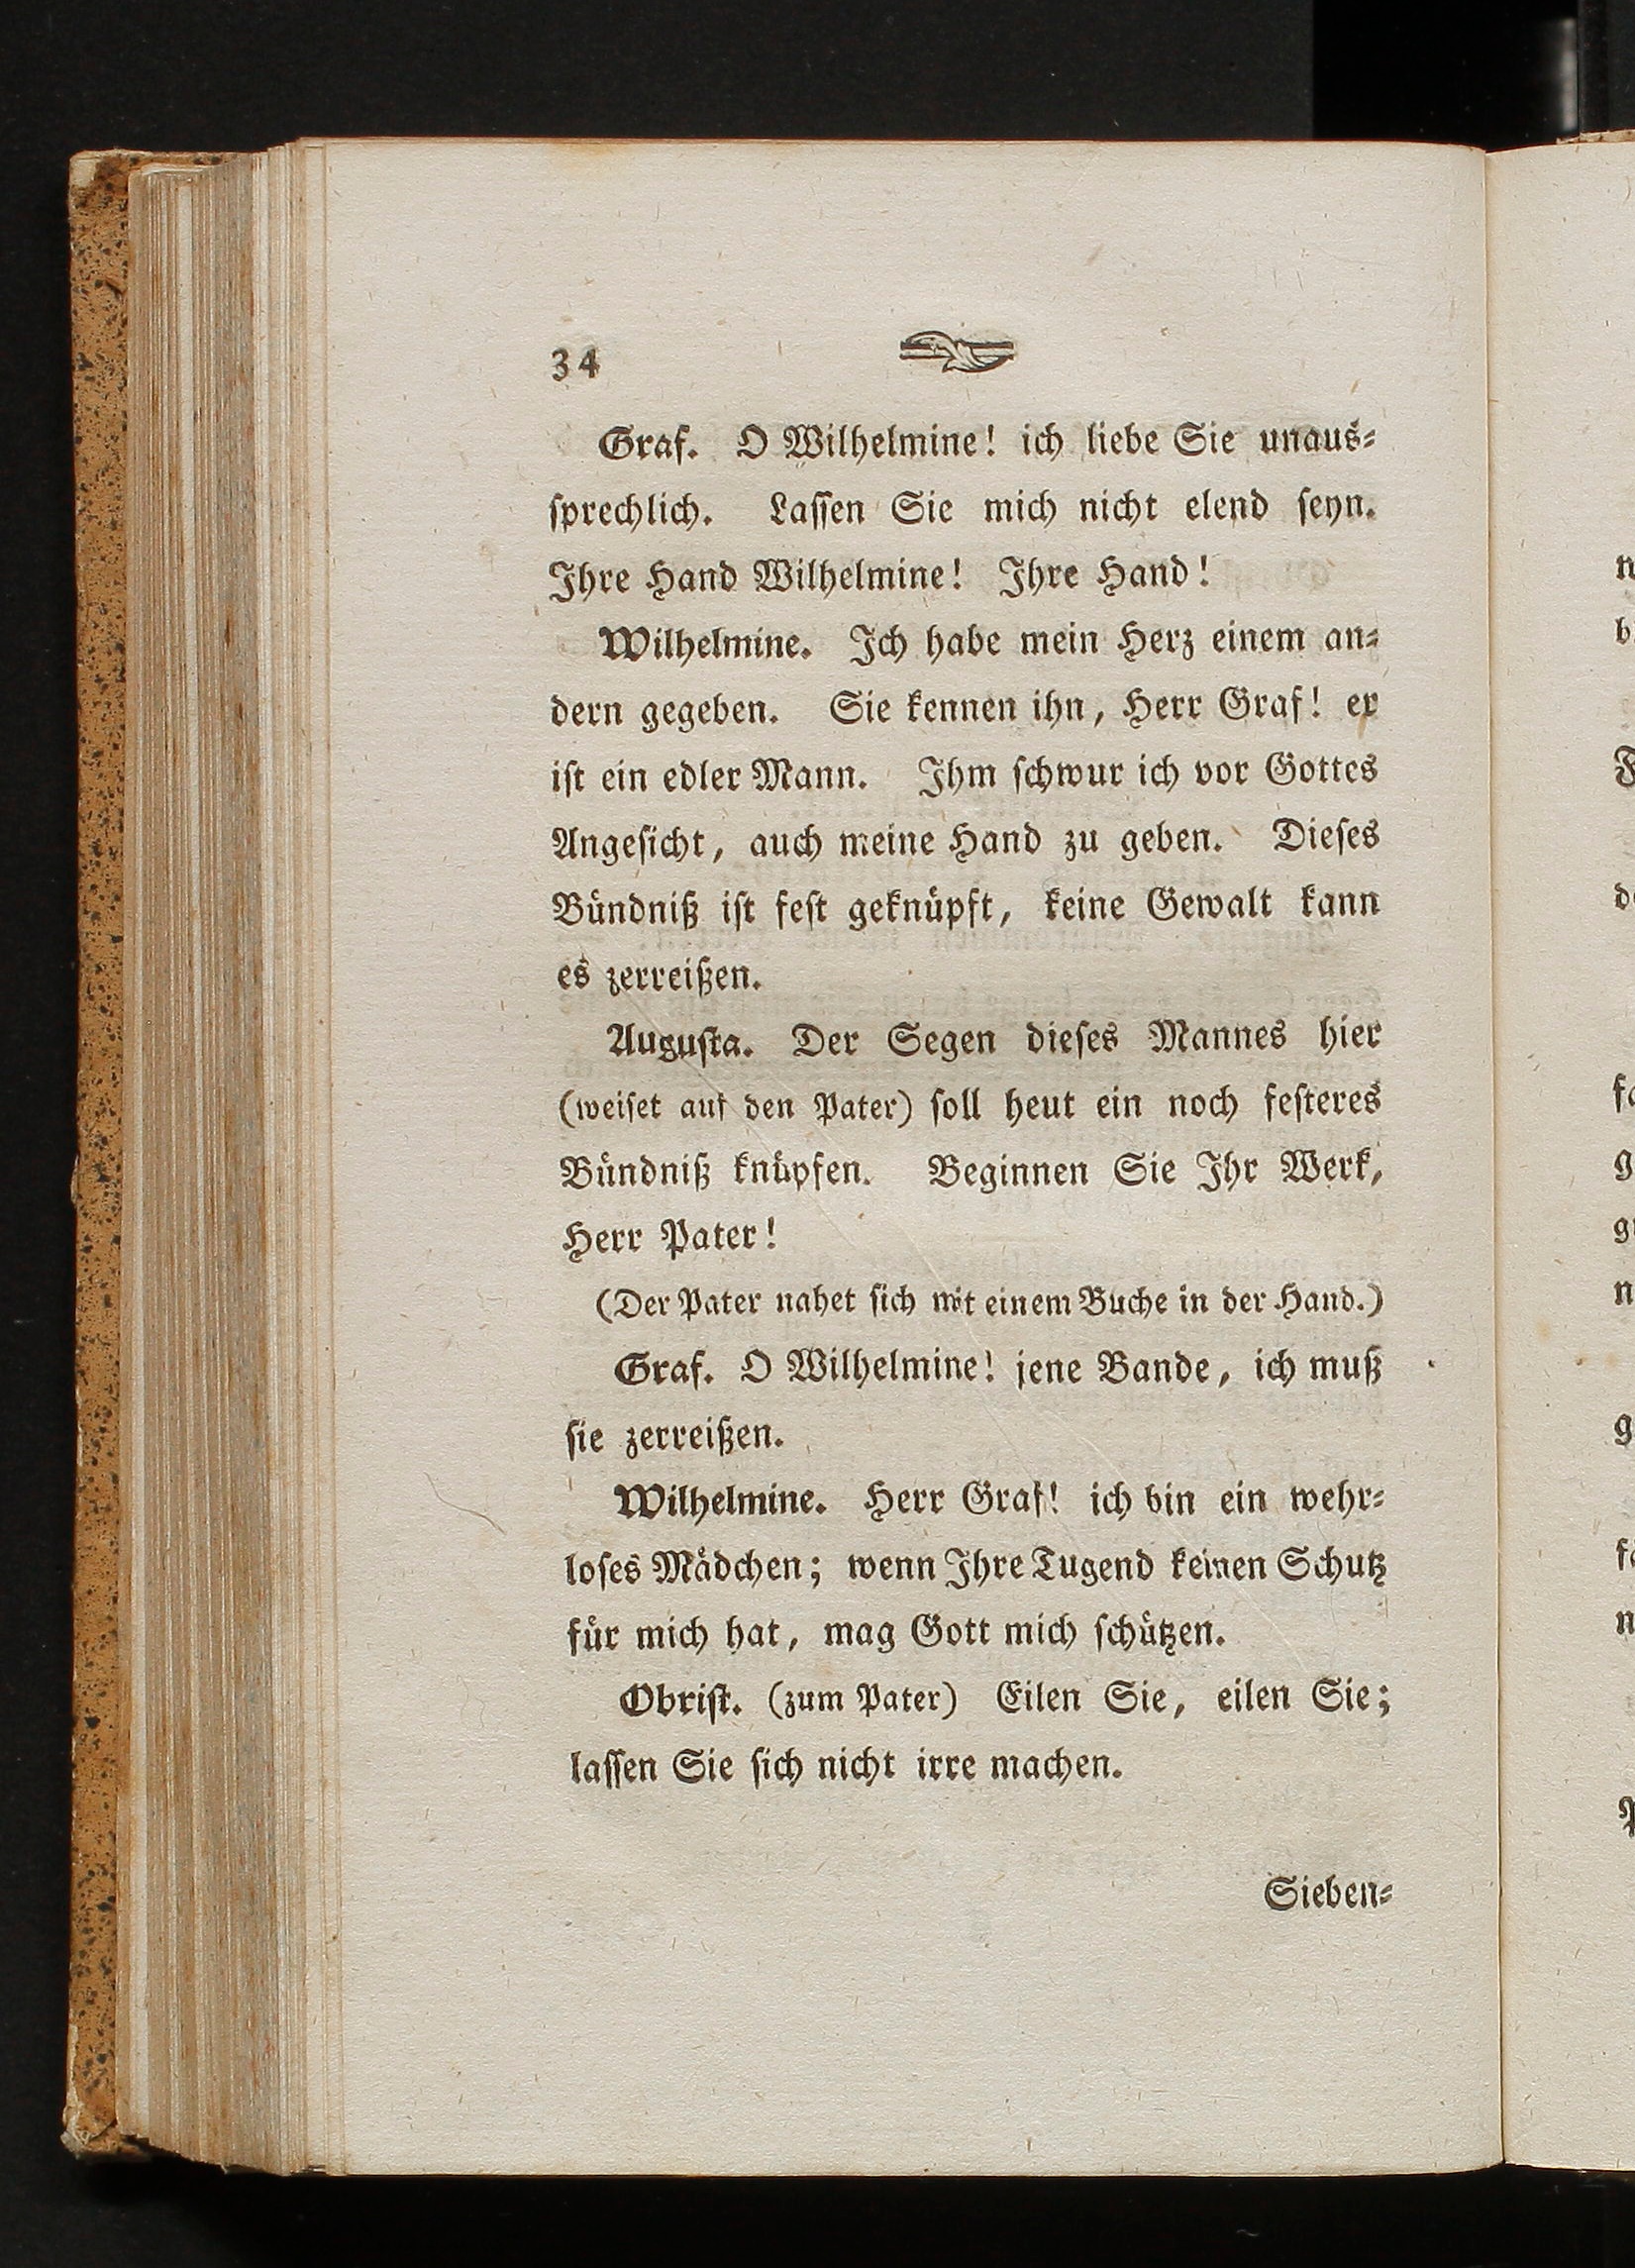 34
Graf. O Wilhelmine! ich liebe Sie unaus⸗
ſprechlich. Laſſen Sie mich nicht elend ſeyn.
Ihre Hand Wilhelmine! Ihre Hand!
Wilhelmine. Ich habe mein Herz einem an⸗
dern gegeben. Sie kennen ihn, Herr Graf! er
iſt ein edler Mann. Ihm ſchwur ich vor Gottes
Angeſicht, auch meine Hand zu geben. Dieſes
Buͤndniß iſt feſt geknuͤpft, keine Gewalt kann
es zerreißen.
Auguſta. Der Segen dieſes Mannes hier
(weiſet auf den Pater) ſoll heut ein noch feſteres
Buͤndniß knuͤpfen. Beginnen Sie Ihr Werk,
Herr Pater!
(Der Pater nahet ſich mit einem Buche in der Hand.)
Graf. O Wilhelmine! jene Bande, ich muß
ſie zerreißen.
Wilhelmine. Herr Graf! ich bin ein wehr⸗
loſes Maͤdchen; wenn Ihre Tugend keinen Schutz
fuͤr mich hat, mag Gott mich ſchuͤtzen.
Obriſt. (zum Pater) Eilen Sie, eilen Sie;
laſſen Sie ſich nicht irre machen.
Sieben⸗